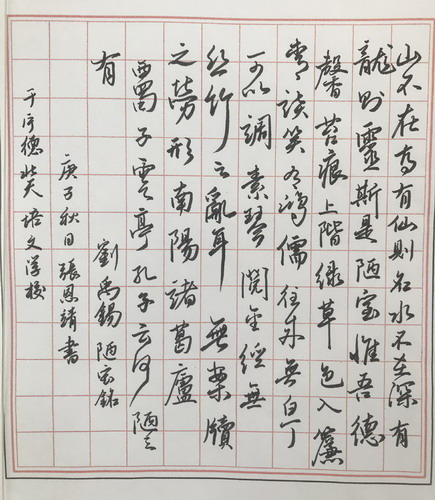 山不在高有仙则名水不在深有
龍则靈斯是陋室惟吾德
馨苔痕上階绿草色入簾
青談笑有鸿儒往来無白丁
可以調素琴閲金經無
丝竹之亂耳無案牘
之劳形南陽諸葛廬
西蜀子雲亭孔子云何陋之
有
劉禹錫陋室銘
庚子秋日張恩靖書
于德北天培文学校